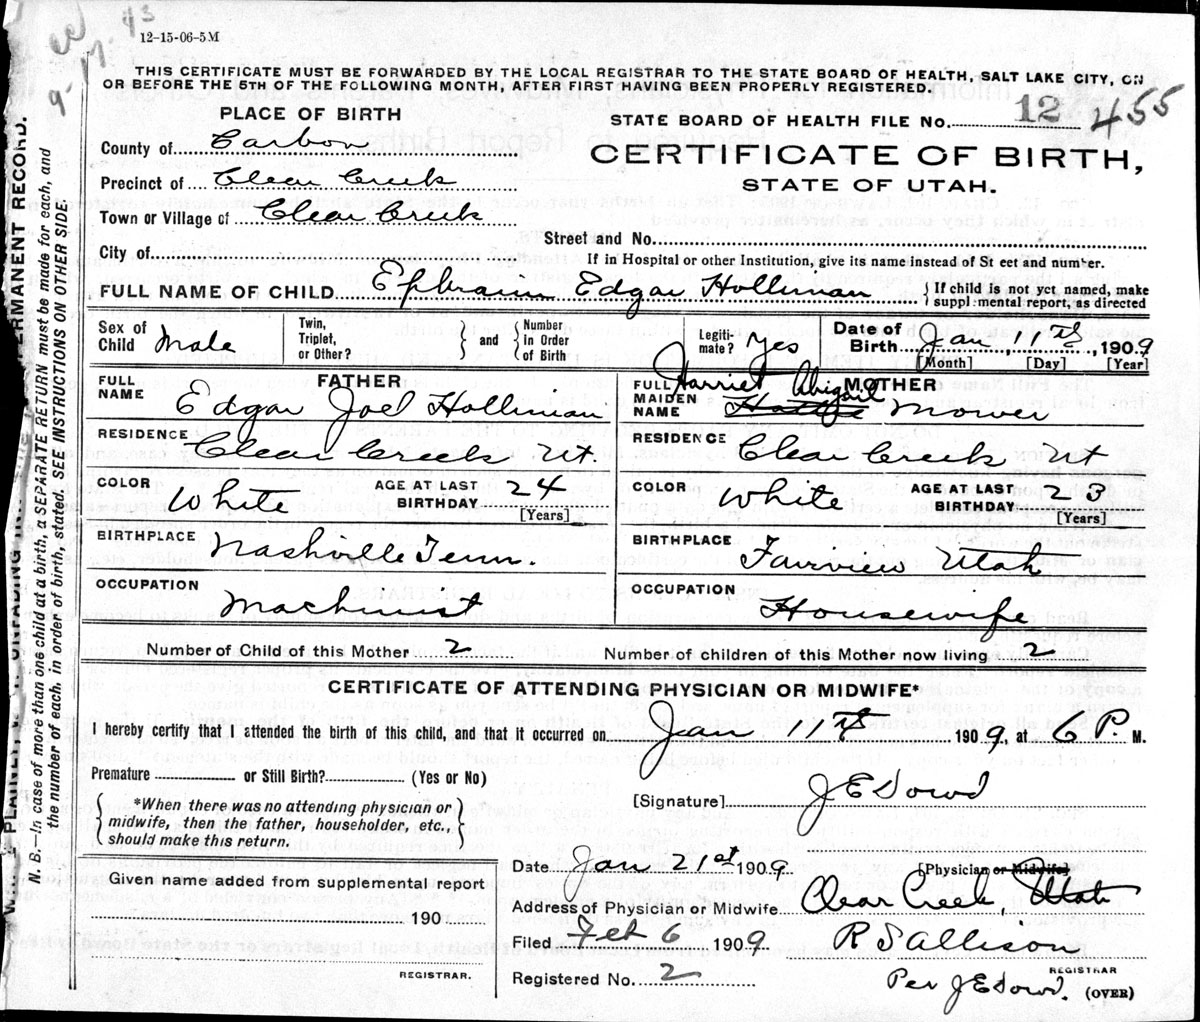 12-15-06-5M
THIS CERTIFICATE MUST BE FORWARDED BY THE LOCAL REGISTRAR TO THE STATE BOARD OF HEALTH, SALT LAKE CITY, ON
OR BEFORE THE 5TH OF THE FOLLOWING MONTH, AFTER FIRST HAVING BEEN PROPERLY REGISTERED.
PLACE OF BIRTH
County of Carbon
Precinct of Clear Creek
Town or Village of Clear Creek
City of
STATE BOARD OF HEALTH FILE No. 12 455
CERTIFICATE OF BIRTH,
STATE OF UTAH.
Street and No.
If in Hospital or other Institution, give its name instead of St eet and number.
FULL NAME OF CHILD Ephraim Edgar Holliman
If child is not yet named, make
suppl mental report, as directed
Sex of Child Male
Twin, Triplet, or Other?
and
Number in Order of Birth
Legiti-mate? Yes
Date of Birth Jan 11th, 1909
[Month] [Day] [Year]
FATHER
FULL NAME Edgar Joel Holliman
RESIDENCE Clear Creek Ut.
COLOR White AGE AT LAST BIRTHDAY 24
[Years]
BIRTHPLACE Nashville Tenn.
OCCUPATION Machinist
MOTHER
FULL MAIDEN NAME Harriet Abigail Mower
RESIDENCE Clear Creek Ut
COLOR White AGE AT LAST BIRTHDAY 23
[Years]
BIRTHPLACE Fairview Utah
OCCUPATION Housewife
Number of Child of this Mother 2
Number of children of this Mother now living 2
CERTIFICATE OF ATTENDING PHYSICIAN OR MIDWIFE*
I hereby certify that I attended the birth of this child, and that it occurred on Jan 11th 1909, at 6 P. M.
Premature or Still Birth? (Yes or No)
*When there was no attending physician or
midwife, then the father, householder, etc.,
should make this return.
[Signature] J E Dowd
Date Jan 21st 1909 [Physician or Midwife]
Address of Physician or Midwife Clear Creek, Utah
Given name added from supplemental report
190
REGISTRAR.
Filed Feb 6 1909 R S Allison
REGISTRAR
Registered No. 2 Per J E Dowd. (OVER)
N. B.—In case of more than one child at a birth, a SEPARATE RETURN must be made for each, and
the number of each, in order of birth, stated. SEE INSTRUCTIONS ON OTHER SIDE.